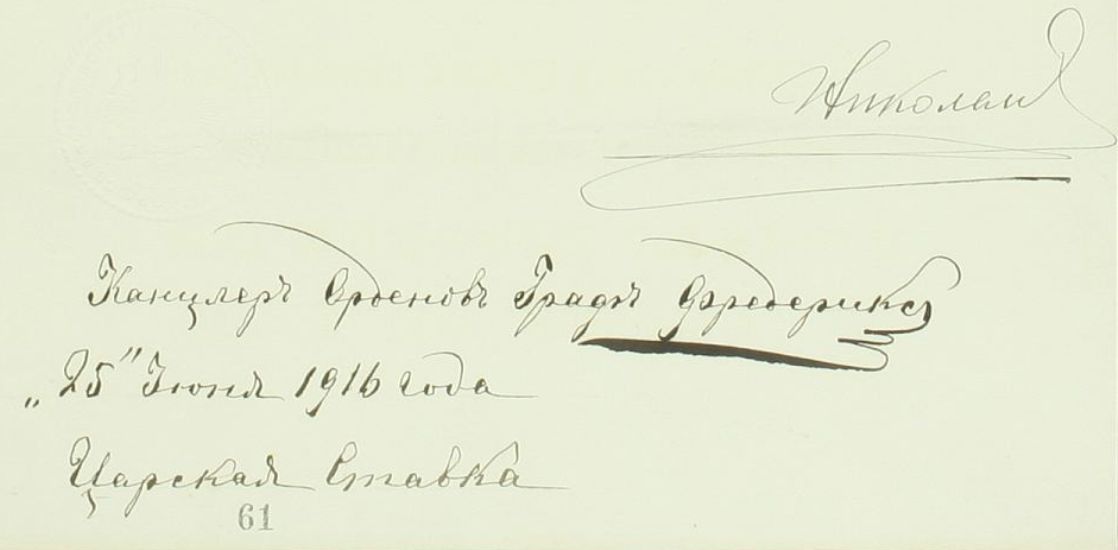 Николай
Канцлеръ Орденовъ Графъ Фредериксъ
„25" Іюня 1916 года
Царская Ставка
61